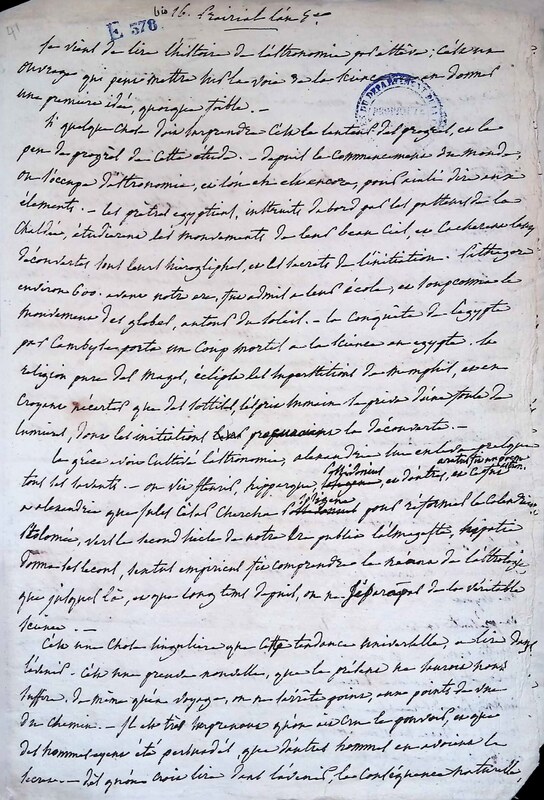 41
E 378 bis 16. Prairial l'an 9e
Je viens de lire l'histoire de l'astronomie par : C'est un
ouvrage qui peut mettre sur la voie de la science en donner
une première idée, quoique foible. —
Si quelque chose doit surprendre c'est la lenteur des progrès, et le
peu de progrès de cette étude. — depuis le commencement du monde,
on s'occupe d'astronomie, et l'on en est encore, pour ainsi dire aux
élements. — les prêtres egyptiens, instruits d'abord par les pasteurs de la
Chaldée, étudierent les mouvements de leur beau ciel, et cacherent leurs
découvertes sous leurs hierogliphes, et les secrets de l'initiation. Pithagore
environ 600. avant notre ere, fut admis a leur école, et soupconna le
mouvement des globes, autour du soleil. — la conquête de l'egypte
par Cambyse porta un coup mortel a la science en egypte. la
religion pure des Mages, éclipsa les superstitions de memphis, et en
croyant n'écarter que des sottises, l'esprit humain se priva d'une foule de
lumieres, dont les initiations la découverte. —
la grèce avoit cultivé l'astronomie, alexandrie lui enleva presque
tous les savants. — on vit fleurir, hipparque, Possidonius et d'autres, et
a alexandrie que Jules César chercha Sosigène pour réformer le Calendrier
Ptolomée, vers le second siècle de notre ere publia l'almageste,
donna ses leçons, sextus empiricus fit comprendre la de l'astrologie
que jusques là, et que longtems depuis, on ne sépara pas de la véritable
science. —
C'est une chose singuliere que cette tendance universelle, a lire dans
l'avenir. C'est une preuve nouvelle, que le présent ne sauroit nous
suffire. de même qu'en voyage, on ne s'arrête point, aux points de vue
du chemin. — Il est très surprenant qu'on ait cru le pouvoir, et que
des hommes ayent été persuadés, que d'autres hommes en avoient le
secret. — dès qu'on croit lire dans l'avenir, la conséquence naturelle,